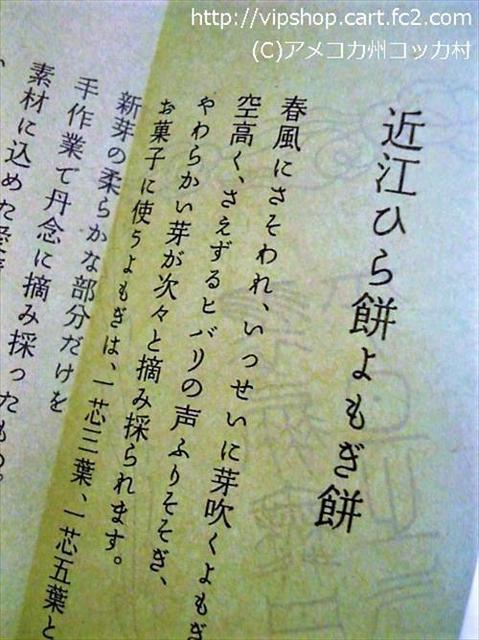 http://vipshop.cart.fc2.com
(C)アメコカ州コッカ村
近江ひら餅よもぎ餅
春風にさそわれ、いっせいに芽吹くよもぎ
空高く、さえずるヒバリの声ふりそそぎ、
やわらかい芽が次々と摘み採られます。
お菓子に使うよもぎは、一芯三葉、一芯五葉と
新芽の柔らかな部分だけを
手作業で丹念に摘み採ったもの。
素材に込めた